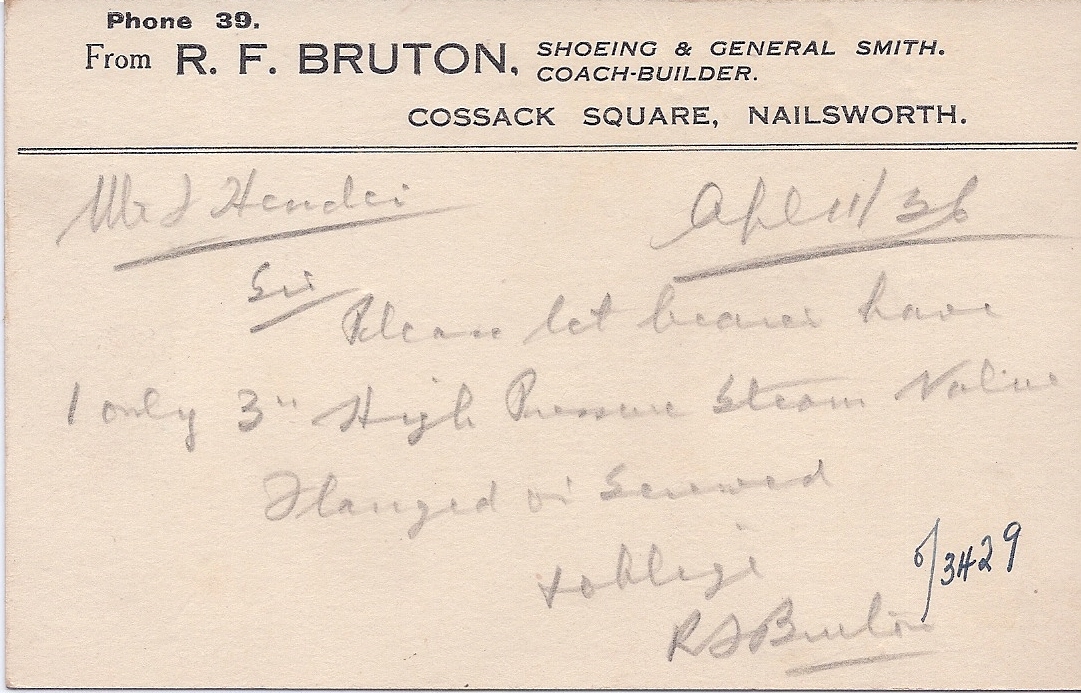 Phone 39.
From R. F. BRUTON, SHOEING & GENERAL SMITH.
COACH-BUILDER.
COSSACK SQUARE, NAILSWORTH.
Mr J
Apl 11/36
Sir
Please let bearer have
1 only 3" High Pressure Steam Valve
Flanged or Screwed
& oblige
R F Bruton
o/3429